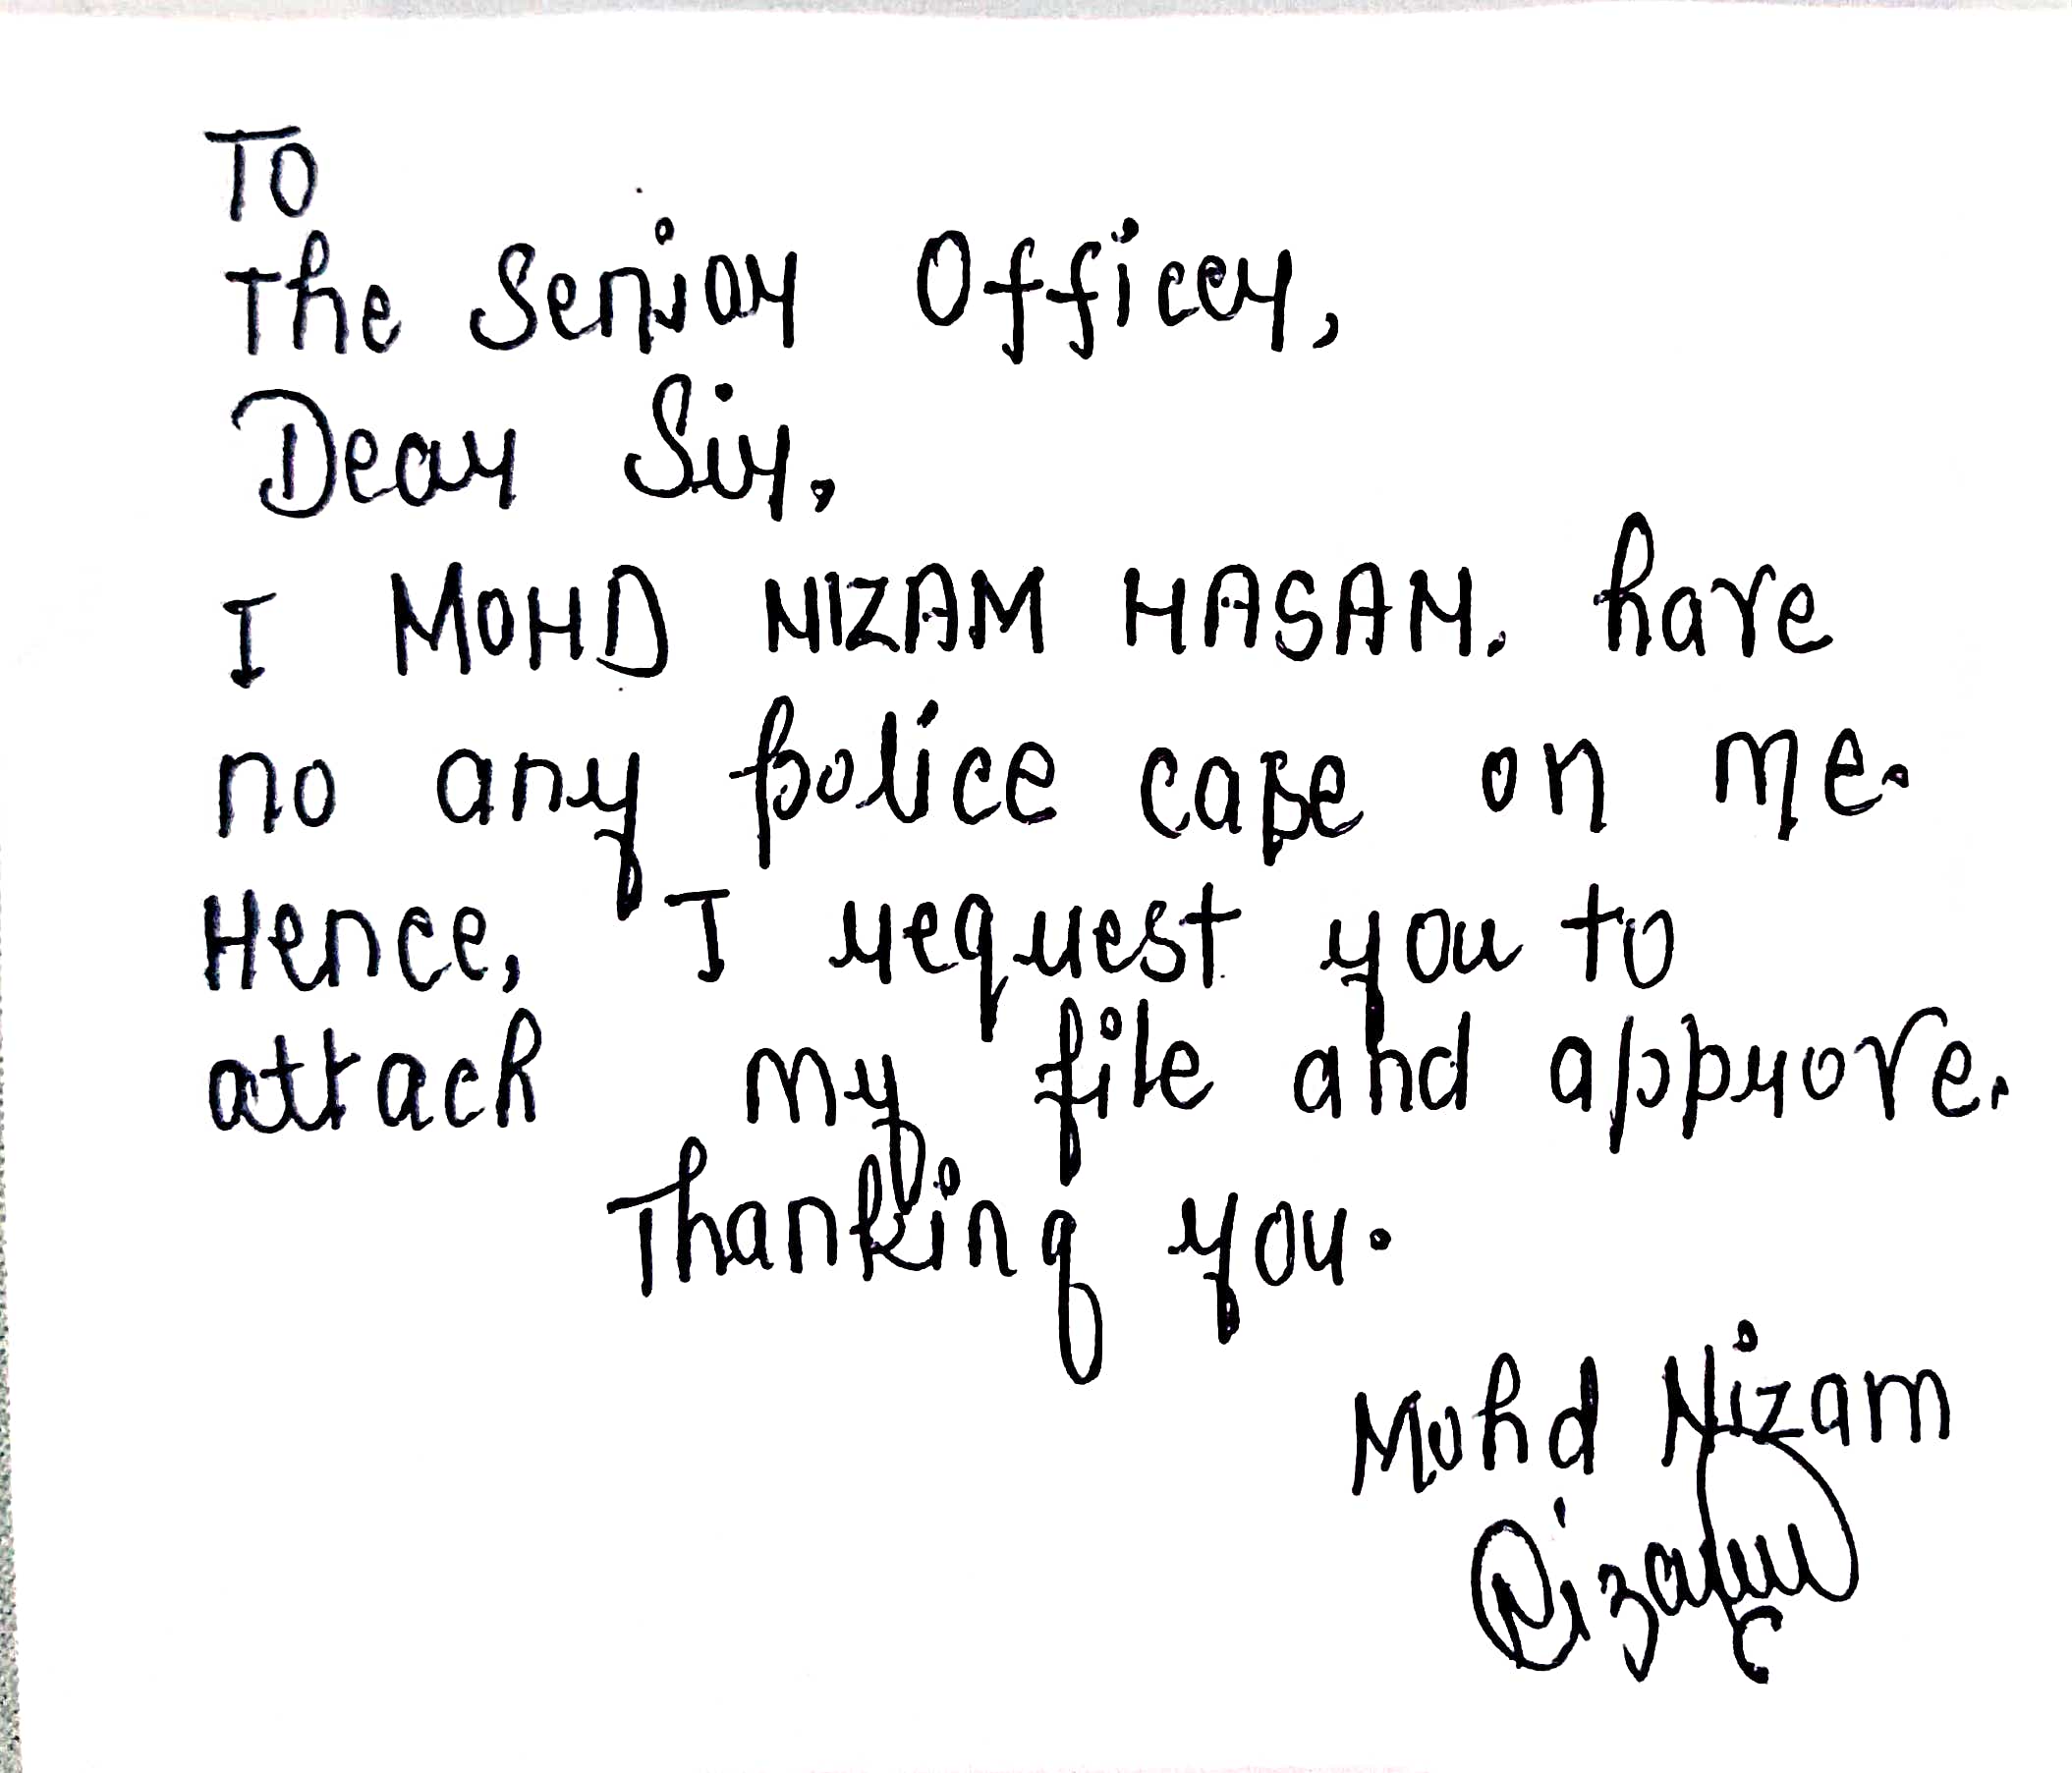 To
The Senior Officer,
Dear Sir,
I MOHD NIZAM HASAN. have
no any police case on me.
Hence, I request you to
attach my file and approve.
Thanking you.
Mohd Nizam
Nizam